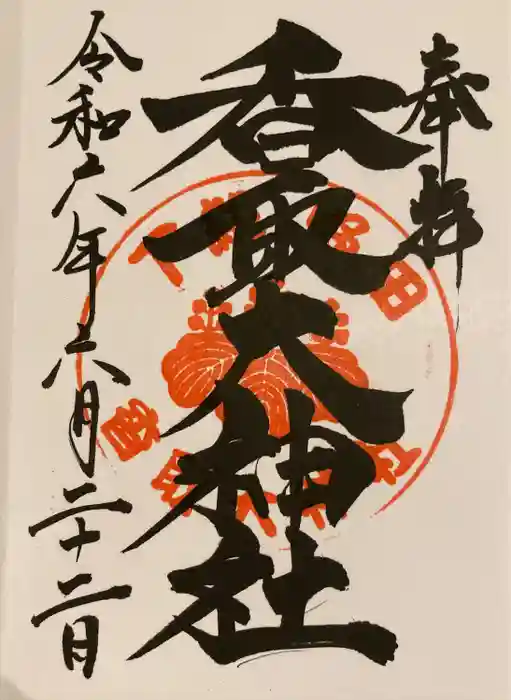 奉拝
香取大神社
令和六年六月二十二日